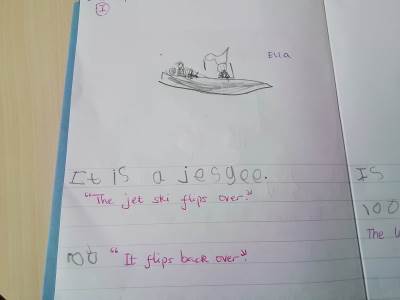 I
Ella
It is a jesgee.
Is
"The jet ski flips over."
100
The
"It flips back over."